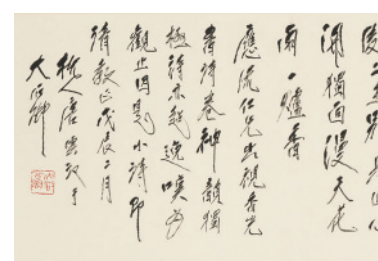 開獨面漫天花
雨一爐香
應流仁兄出視香光
書詩卷神韻獨
極詩亦超逸嘆為
觀止因題小詩即
請教正戊辰二月
杭人唐雲記于
大石齋